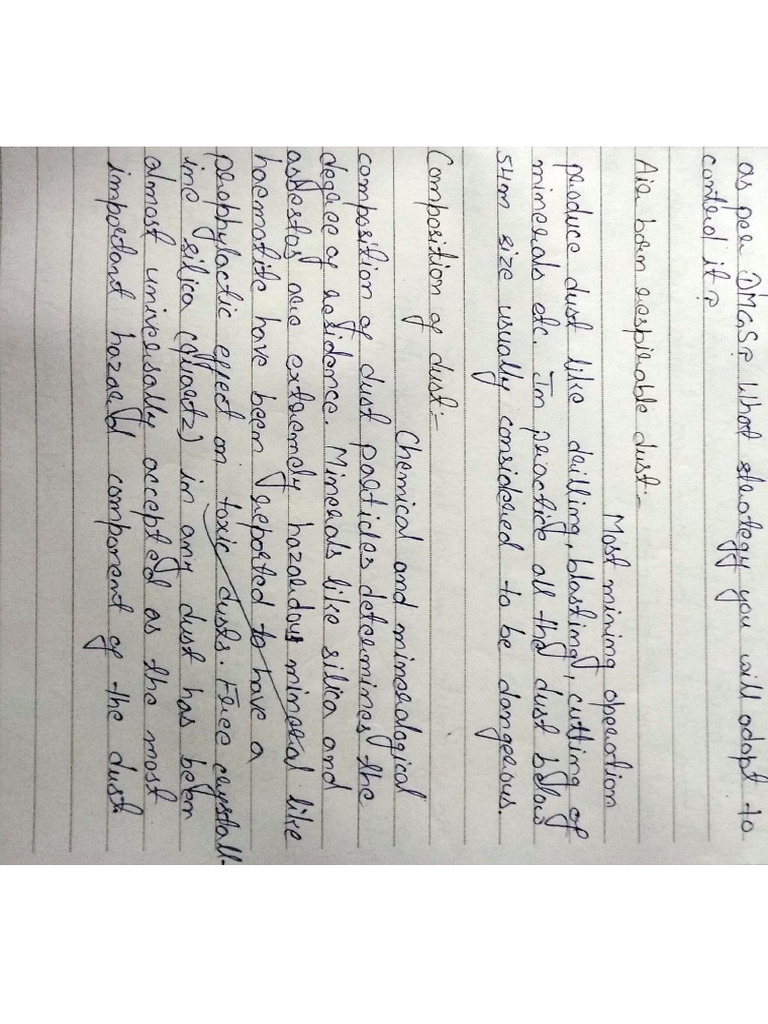 as per DMGS? What strategy you will adopt to
control it?
Air born respirable dust:-
Most mining operation
produce dust like drilling, blasting, cutting of
minerals etc. In practice all the dust below
5μm size usually considered to be dangerous.
Composition of dust:-
Chemical and mineralogical
composition of dust particles determines the
degree of residence. Minerals like silica and
asbestos are extremely hazardous mineral like
haematite have been reported to have a
prophylactic effect on toxic dusts. Free crystall-
ine silica (quartz) in any dust has been
almost universally accepted as the most
important hazard component of the dust.